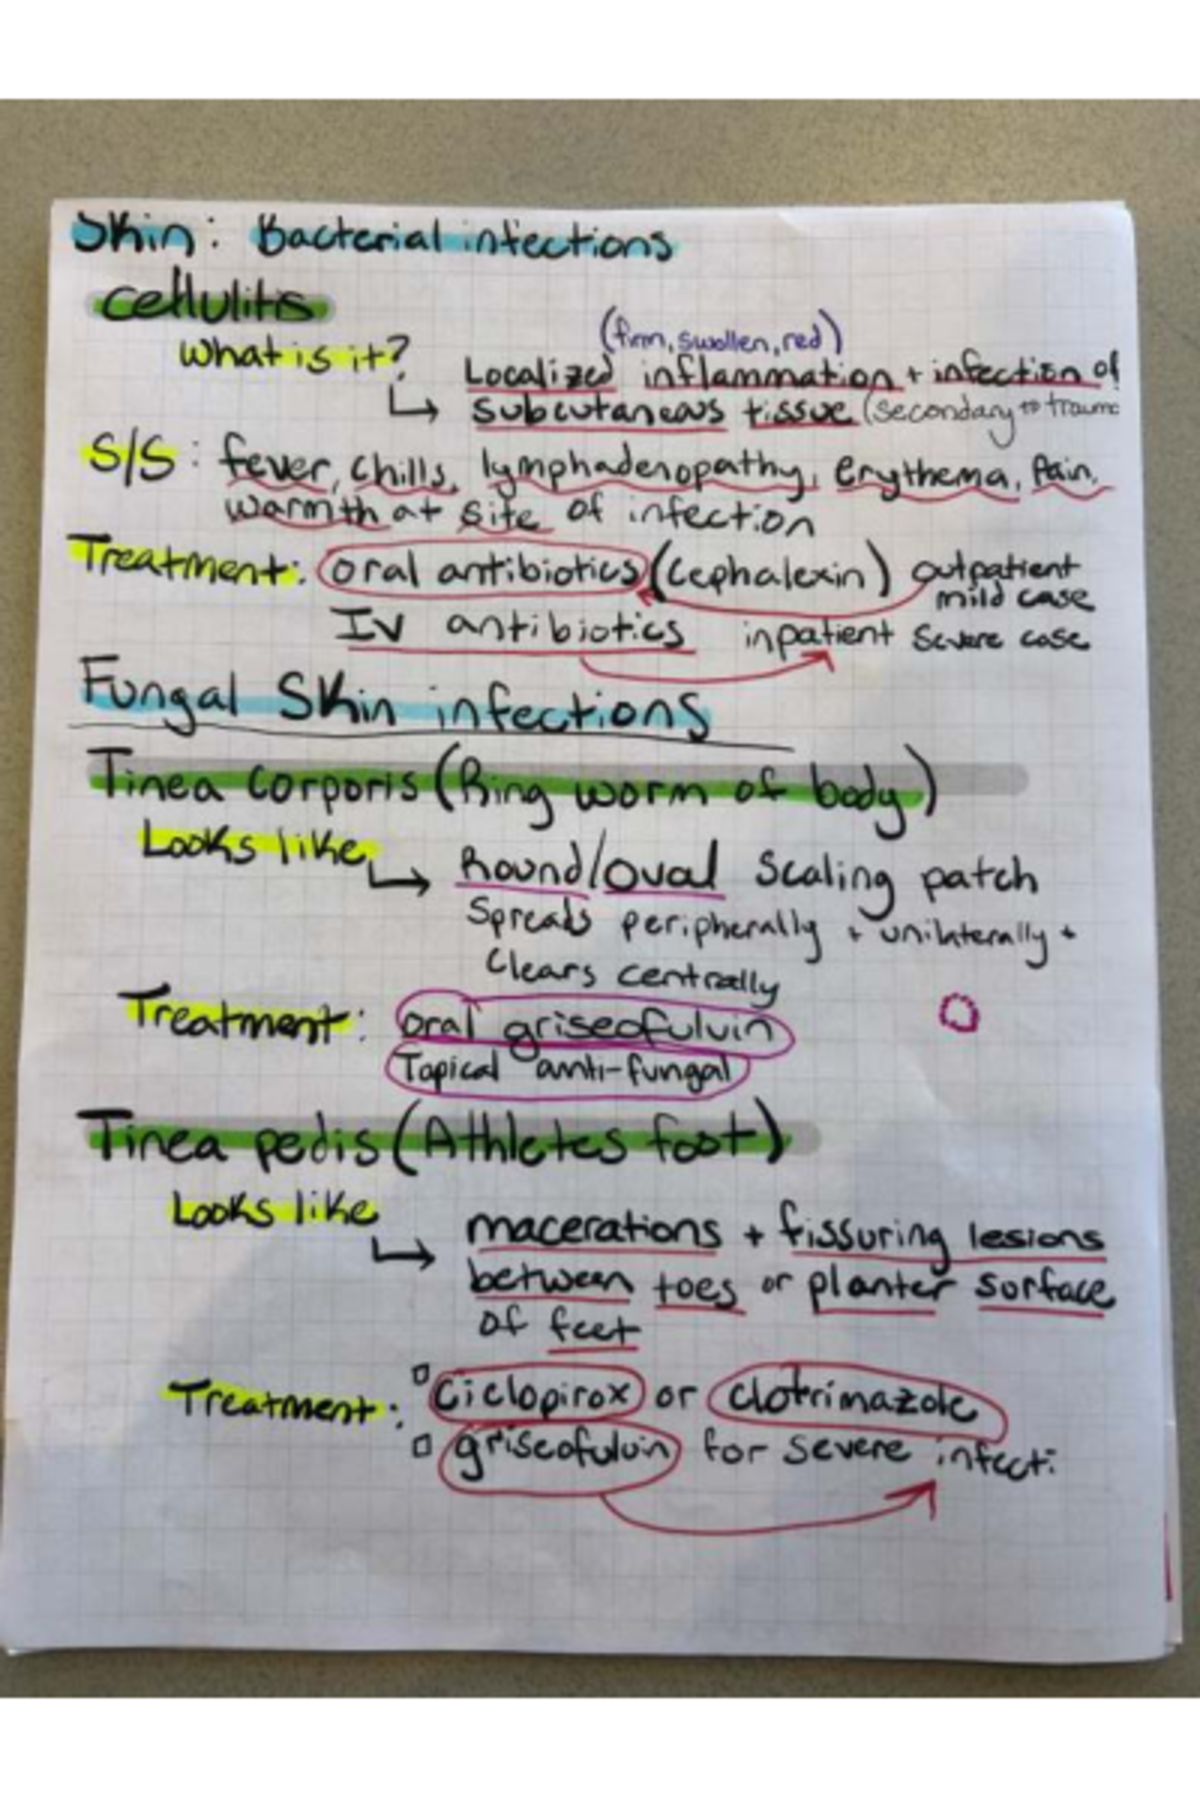 Skin: Bacterial infections
cellulitis
(firm, swollen, red)
What is it?
Localized inflammation + infection of
subcutaneous tissue (secondary to
S/S: fever, chills, lymphadenopathy, erythema, Pain,
warmth at site of infection
Treatment: oral antibiotics (cephalexin) outpatient
mild case
IV antibiotics inpatient severe case
Fungal Skin infections
Tinea corporis (Ring worm of body)
Looks like
Round/oval scaling patch
Spreads peripherally + unilaterally +
clears centrally
Treatment: oral griseofulvin
Topical anti-fungal
Tinea pedis (Athletes foot)
Looks like
macerations + fissuring lesions
between toes or planter surface
of feet
Treatment: Ciclopirox or clotrimazole
griseofulvin for severe infecti